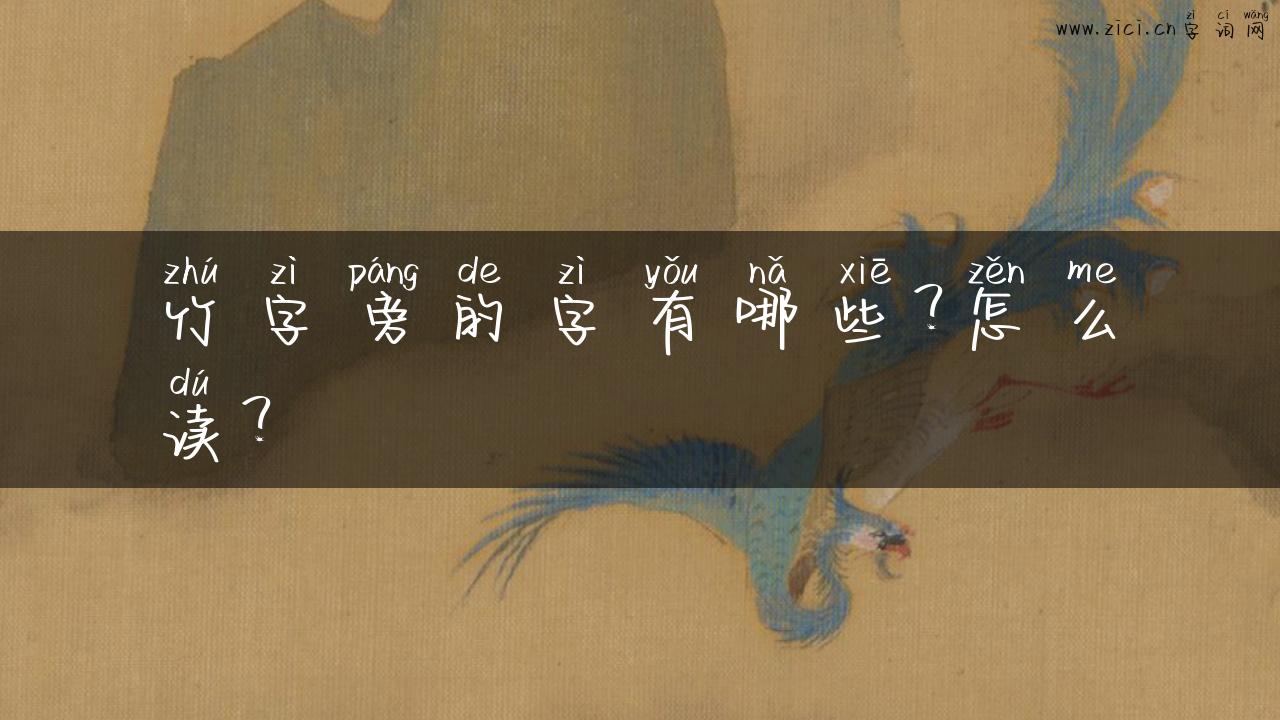 www.zici.cn zì字 cí词 wǎng网
zhú zì páng de zì yǒu nǎ xiē zěn me
竹字旁的字有哪些？怎么
dú
读？